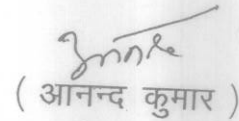 ( आनन्द कुमार )